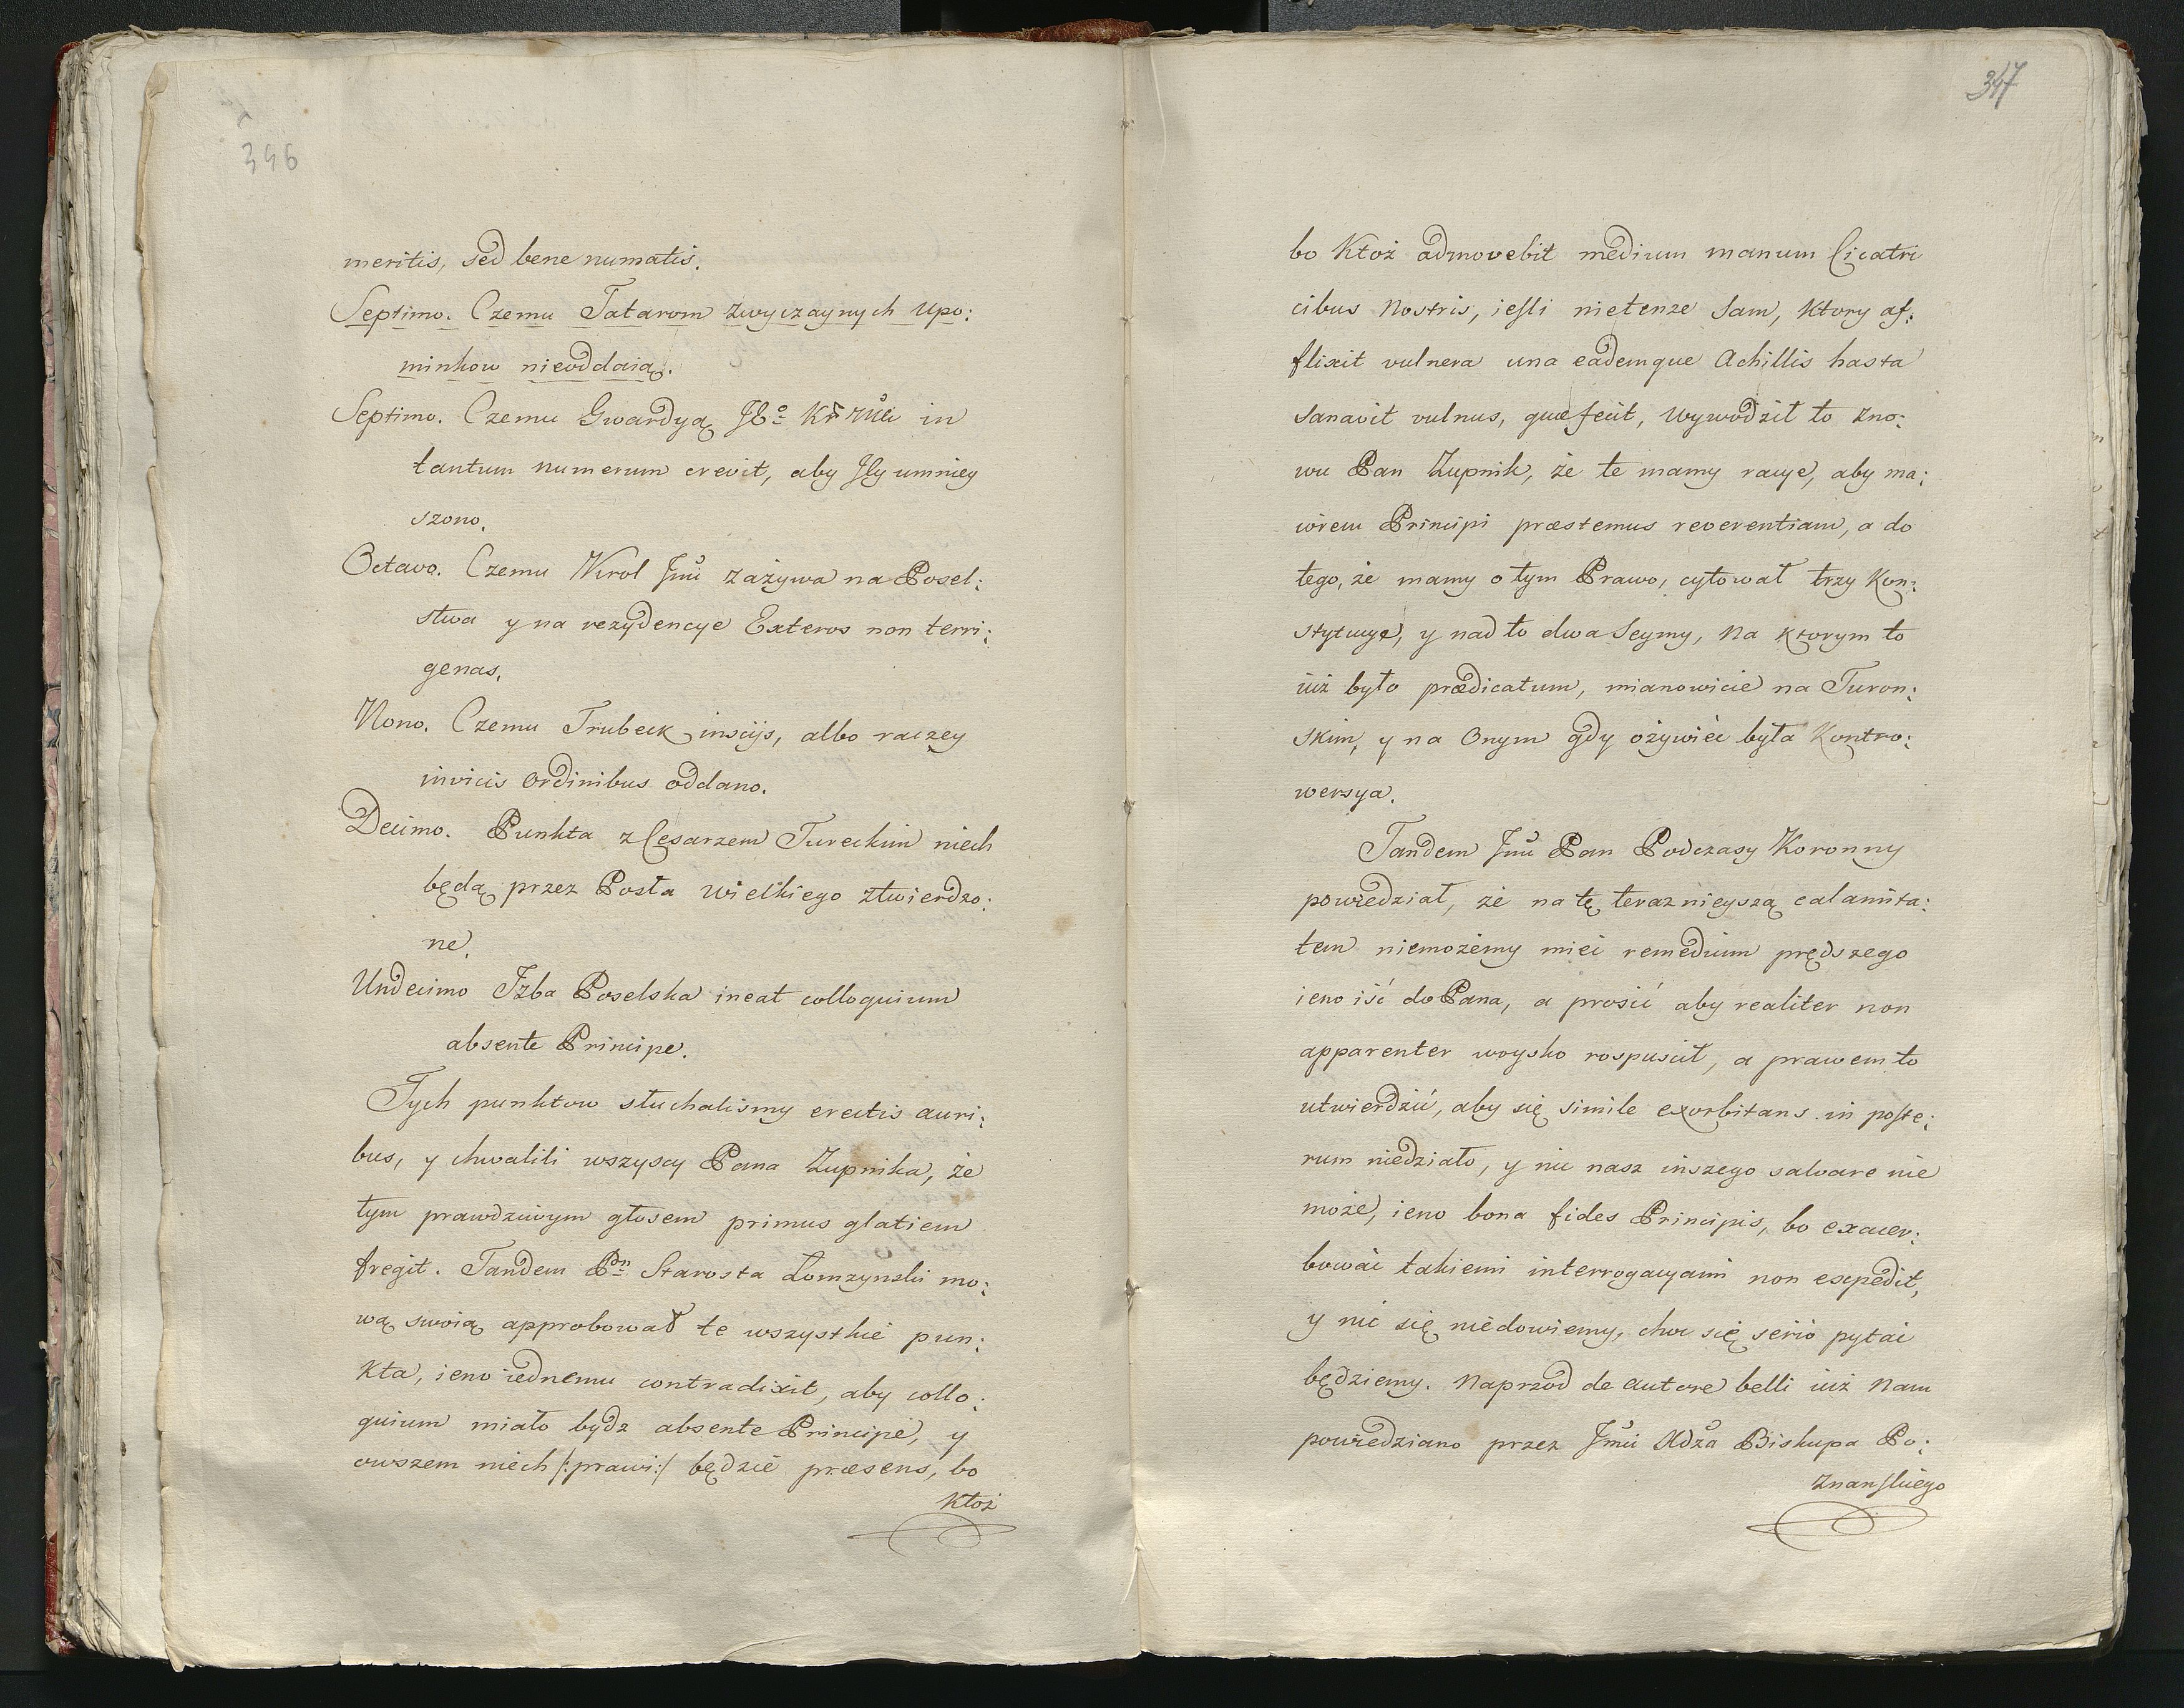 396
meritis, sed bene numatis.
Septimo. Czemu Tatarom zwyczaynych upo:
minkow nieoddaią.
Septimo. Czemu Gwardyą JEo Kr Mći in
tantum numerum crevit, aby Jły umniey
szono.
Octavo. Czemu Krol Jmć zażywa na Posel:
stwa y na rezydencye Exteros non terri:
genas.
Nono. Czemu Trubeck inscijs, albo raczey
invicis ordinibus oddano.
Decimo. Punkta z Cesarzem Tureckim niech
będą przez Posła wielkiego ztwierdzo:
ne.
Undecimo Izba Poselska ineat colloquium
absente Principe.
Tych punktow słuchalismy erectis auri:
bus, y chwalili wszyscy Pana Zupnika, że
tym prawdziwym głosem primus glatiem
fregit. Tandem Pan Starosta Łomzynski mo:
wą swoią approbował te wszystkie pun:
kta, ieno iednemu contradixit, aby collo:
quium miało bydz absente Principe, y
owszem niech /:prawi:/ będzie præsens, bo
Ktoż
347
bo Ktoż admovebit medium manum Cicatri
cibus Nostris, iesli nietenze Sam, Ktory af:
flixit vulnera una eademque Achillis hasta
sanavit vulnus, quæ fecit, wywodził to zno:
wu Pan Zupnik, że te mamy racye, aby ma:
iorem Principi præstemus reverentiam, a do
tego, że mamy o tym Prawo, cytował trzy Kon:
stytucye, y nad to dwa Seymy, na ktorym to
iuż było prædicatum, mianowicie na Turon:
skim, y na Onym gdy ożywieć była Kontro:
wersya.
Tandem Jmć Pan Podczasy Koronny
powiedział, że na tę teraznieyszą calamita:
tem niemożemy mieć remedium prędszego
ieno iść do Pana, a prosić aby realiter non
apparenter woysko rospuscił, a prawem to
utwierdzić, aby się simile exorbitans in poste:
rum niedziało, y nic nasz inszego salvare nie
może, ieno bona fides Principis, bo exacer:
bować takiemi interrogacyami non expedit,
y nic się niedowiemy, choc się serio pytać
będziemy. Naprzod de autore belli iuż Nam
powiedziano przez Jmć Xdza Biskupa Po:
znanskiego